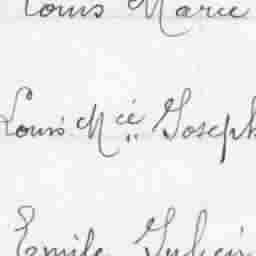 Louis Marie
Louis Mie Joseph
Emile Julien